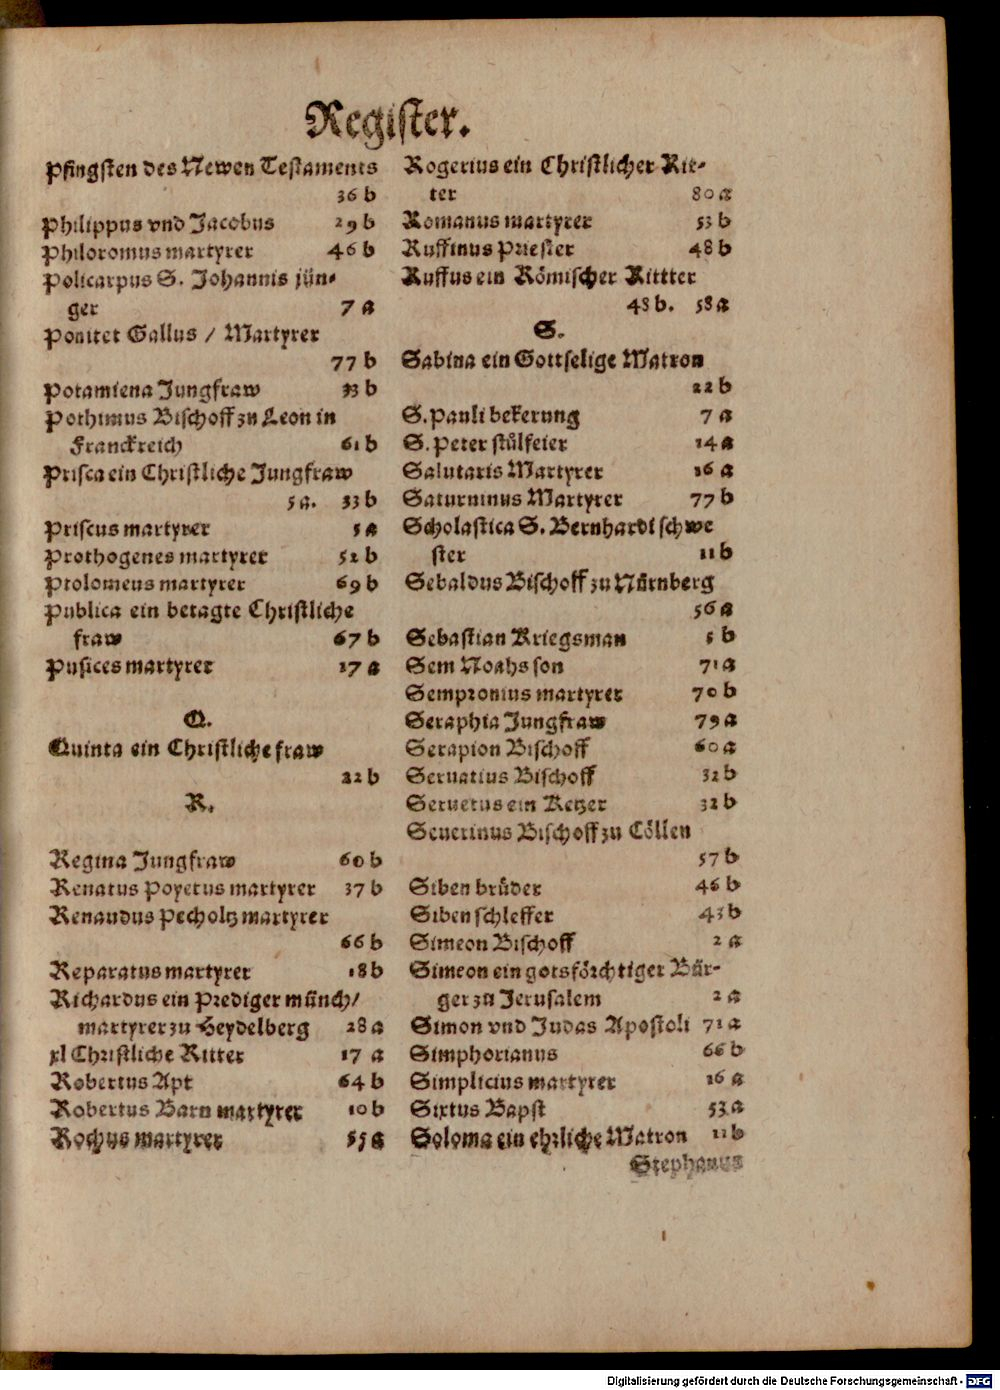 Register.
Pfingsten des Newen Testaments
36 b
Philippus vnd Jacobus 29 b
Philoromus martyrer 46 b
Policarpus S. Johannis jün-
ger 7 a
Ponitet Gallus / Martyrer
77 b
Potamiena Jungfraw 33 b
Pothimus Bischoff zu Leon in
Franckreich 61 b
Prisca ein Christliche Jungfraw
5 a. 33 b
Priscus martyrer 5 a
Prothogenes martyrer 52 b
Ptolomeus martyrer 69 b
Publica ein betagte Christliche
fraw 67 b
Pusices martyrer 17 a
Q.
Quinta ein Christliche fraw
22 b
R.
Regina Jungfraw 60 b
Renatus Poyetus martyrer 37 b
Renaudus Pecholtz martyrer
66 b
Reparatus martyrer 18 b
Richardus ein Prediger münch/
martyrer zu Heydelberg 28 a
xl Christliche Ritter 17 a
Robertus Apt 64 b
Robertus Barn martyrer 10 b
Rochus martyrer 55 a
Rogerius ein Christlicher Rit-
ter 80 a
Romanus martyrer 53 b
Ruffinus Priester 48 b
Ruffus ein Römischer Rittter
48 b. 58 a
S.
Sabina ein Gottselige Matron
22 b
S. Pauli bekerung 7 a
S. Peter stůlfeier 14 a
Salutaris Martyrer 16 a
Saturninus Martyrer 77 b
Scholastica S. Bernhardi schwe
ster 11 b
Sebaldus Bischoff zu Nürnberg
56 a
Sebastian Kriegsman 5 b
Sem Noahs son 71 a
Sempronius martyrer 70 b
Seraphia Jungfraw 79 a
Serapion Bischoff 60 a
Seruatius Bischoff 32 b
Seruetus ein Ketzer 32 b
Seuerinus Bischoff zu Cöllen
57 b
Siben brüder 46 b
Siben schleffer 43 b
Simeon Bischoff 2 a
Simeon ein gotsförchtiger Bür-
ger zu Jerusalem 2 a
Simon vnd Judas Apostoli 71 a
Simphorianus 66 b
Simplicius martyrer 16 a
Sixtus Bapst 53 a
Soloma ein ehrliche Matron 11 b
Stephanus
Digitalisierung gefördert durch die Deutsche Forschungsgemeinschaft - DFG